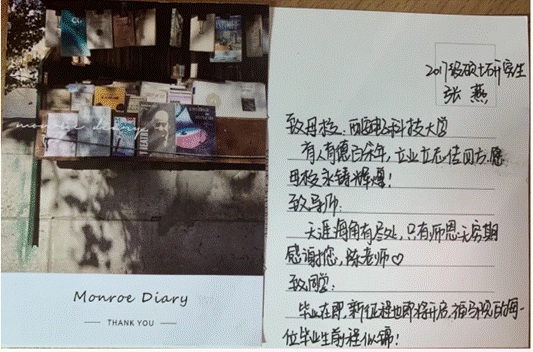 monroe diary
Monroe Diary
THANK YOU
2017级硕士研究生
张燕
致母校、西南科技大学
有人育德百余年,立业立志传四方.愿
母校永铸辉煌!
致导师:
天涯海角有尽处,只有师恩无穷期
感谢您,陈老师♡
致同学:
毕业在即,新征程也即将开启,福马祝百的每一
位毕业生前程似锦!